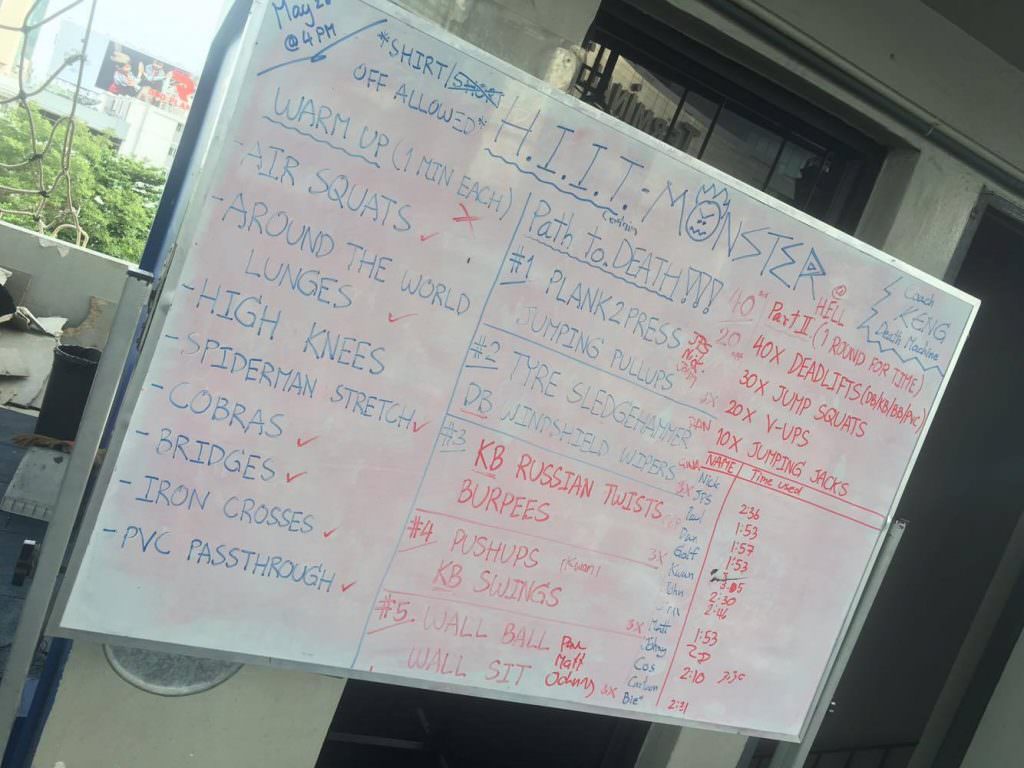 May 20
@ 4 PM
*SHIRT/
OFF ALLOWED*
H.I.I.T-MONSTER
Coach
KENG
Death Machine
WARM UP (1 MIN EACH)
-AIR SQUATS
-AROUND THE WORLD
LUNGES
-HIGH KNEES
-SPIDERMAN STRETCH
-COBRAS
-BRIDGES
-IRON CROSSES
-PVC PASSTHROUGH
Path to DEATH!!!
#1 PLANK 2 PRESS
JUMPING PULLUPS
JPS
Nick
#2 TYRE SLEDGEHAMMER
DB WINDSHIELD WIPERS
DAN
#3 KB RUSSIAN TWISTS
BURPEES
3X
#4 PUSHUPS
KB SWINGS
3X
#5. WALL BALL
WALL SIT
Matt
Johnny
3X
40
20
@ HELL
Part II (1 ROUND FOR TIME)
40X DEADLIFTS (DB/KB/BB/PVC)
30X JUMP SQUATS
20X V-UPS
10X JUMPING JACKS
NAME Time used
Nick 2:36
JPS 1:53
Paul 1:57
Dan 1:53
Golf 3:05
Kwan 2:30
John 2:46
Matt 1:53
Johny
Cos 2:10
Bie 2:31